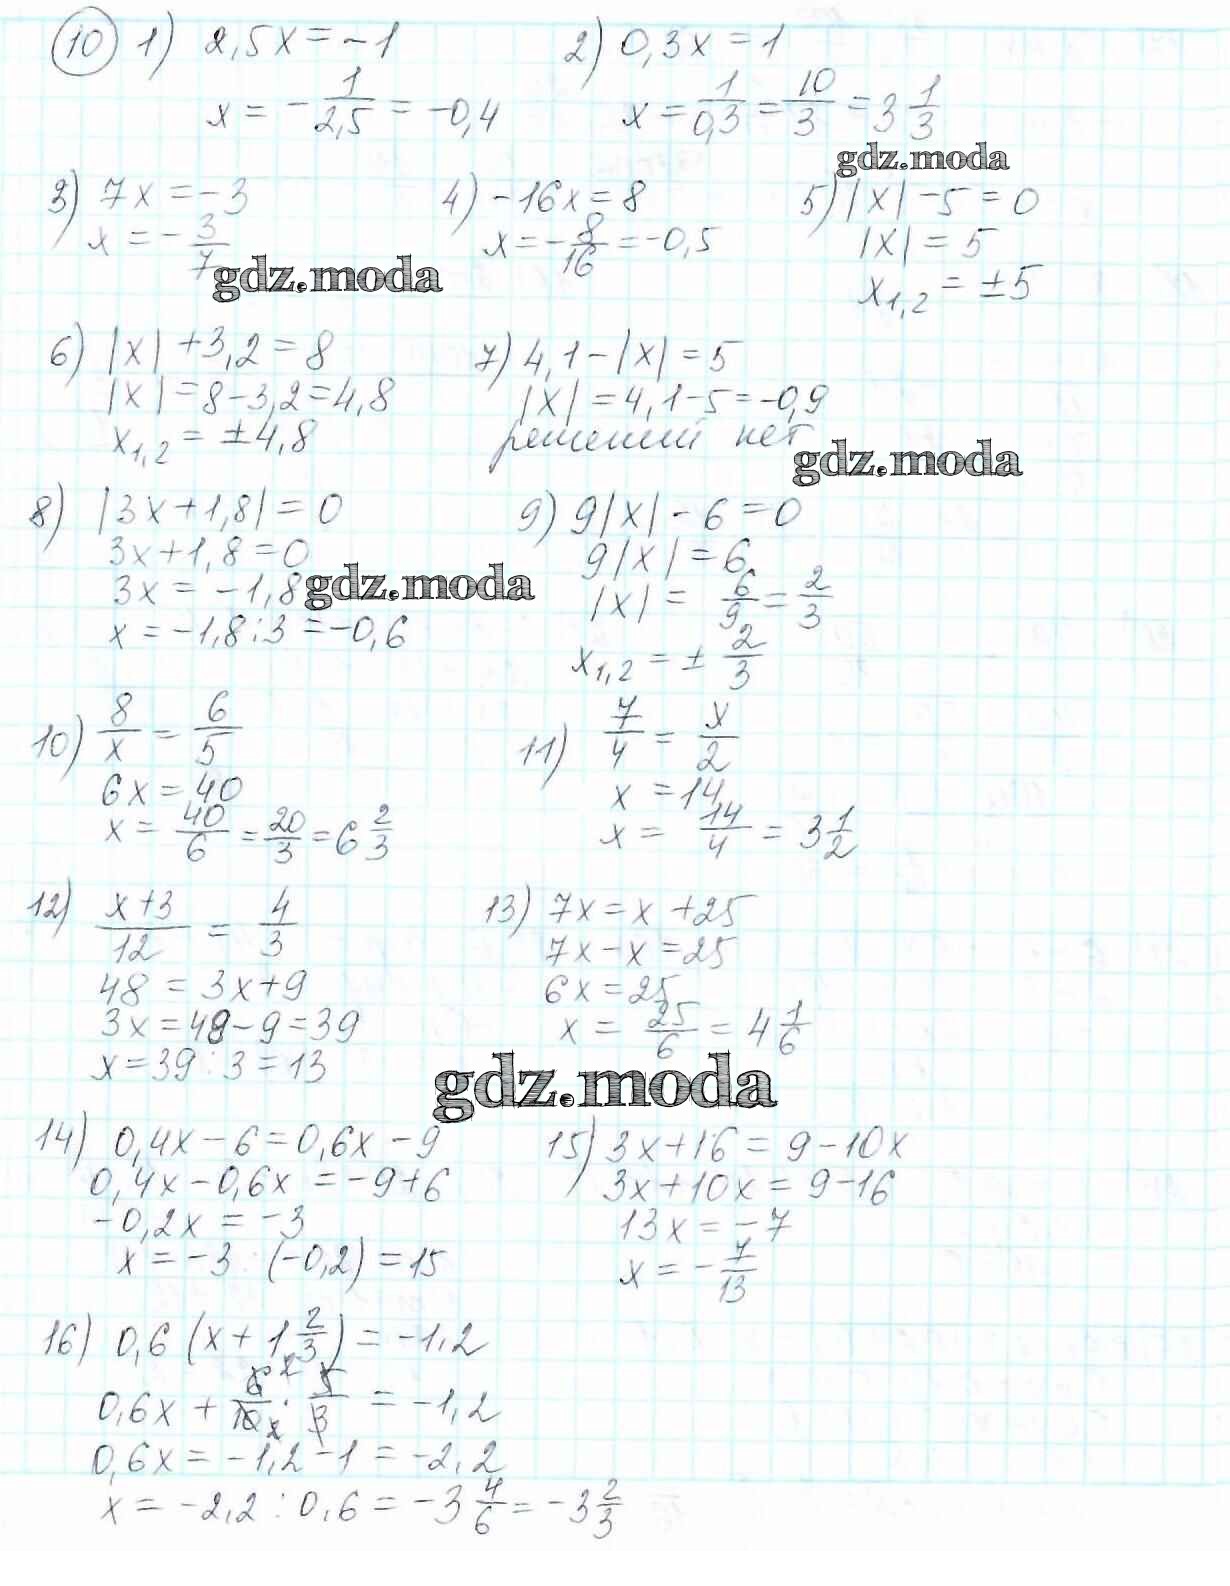 10 1) 2,5x = -1
x = -1/2,5 = -0,4
2) 0,3x = 1
x = 1/0,3 = 10/3 = 3 1/3
gdz.moda
3) 7x = -3
x = -3/7
gdz.moda
4) -16x = 8
x = -8/16 = -0,5
5) |x| - 5 = 0
|x| = 5
x1,2 = ±5
6) |x| + 3,2 = 8
|x| = 8 - 3,2 = 4,8
x1,2 = ±4,8
7) 4,1 - |x| = 5
|x| = 4,1 - 5 = -0,9
решений нет
gdz.moda
8) |3x + 1,8| = 0
3x + 1,8 = 0
3x = -1,8
gdz.moda
x = -1,8 : 3 = -0,6
9) 9|x| - 6 = 0
9|x| = 6
|x| = 6/9 = 2/3
x1,2 = ± 2/3
10) 8/x = 6/5
6x = 40
x = 40/6 = 20/3 = 6 2/3
11) 7/4 = x/2
x = 14
x = 14/4 = 3 1/2
12) (x+3)/12 = 4/3
48 = 3x + 9
3x = 48 - 9 = 39
x = 39 : 3 = 13
13) 7x = x + 25
7x - x = 25
6x = 25
x = 25/6 = 4 1/6
gdz.moda
14) 0,4x - 6 = 0,6x - 9
0,4x - 0,6x = -9 + 6
-0,2x = -3
x = -3 : (-0,2) = 15
15) 3x + 16 = 9 - 10x
3x + 10x = 9 - 16
13x = -7
x = -7/13
16) 0,6 (x + 1 2/3) = -1,2
0,6x + 6/10 · 5/3 = -1,2
0,6x = -1,2 - 1 = -2,2
x = -2,2 : 0,6 = -3 4/6 = -3 2/3